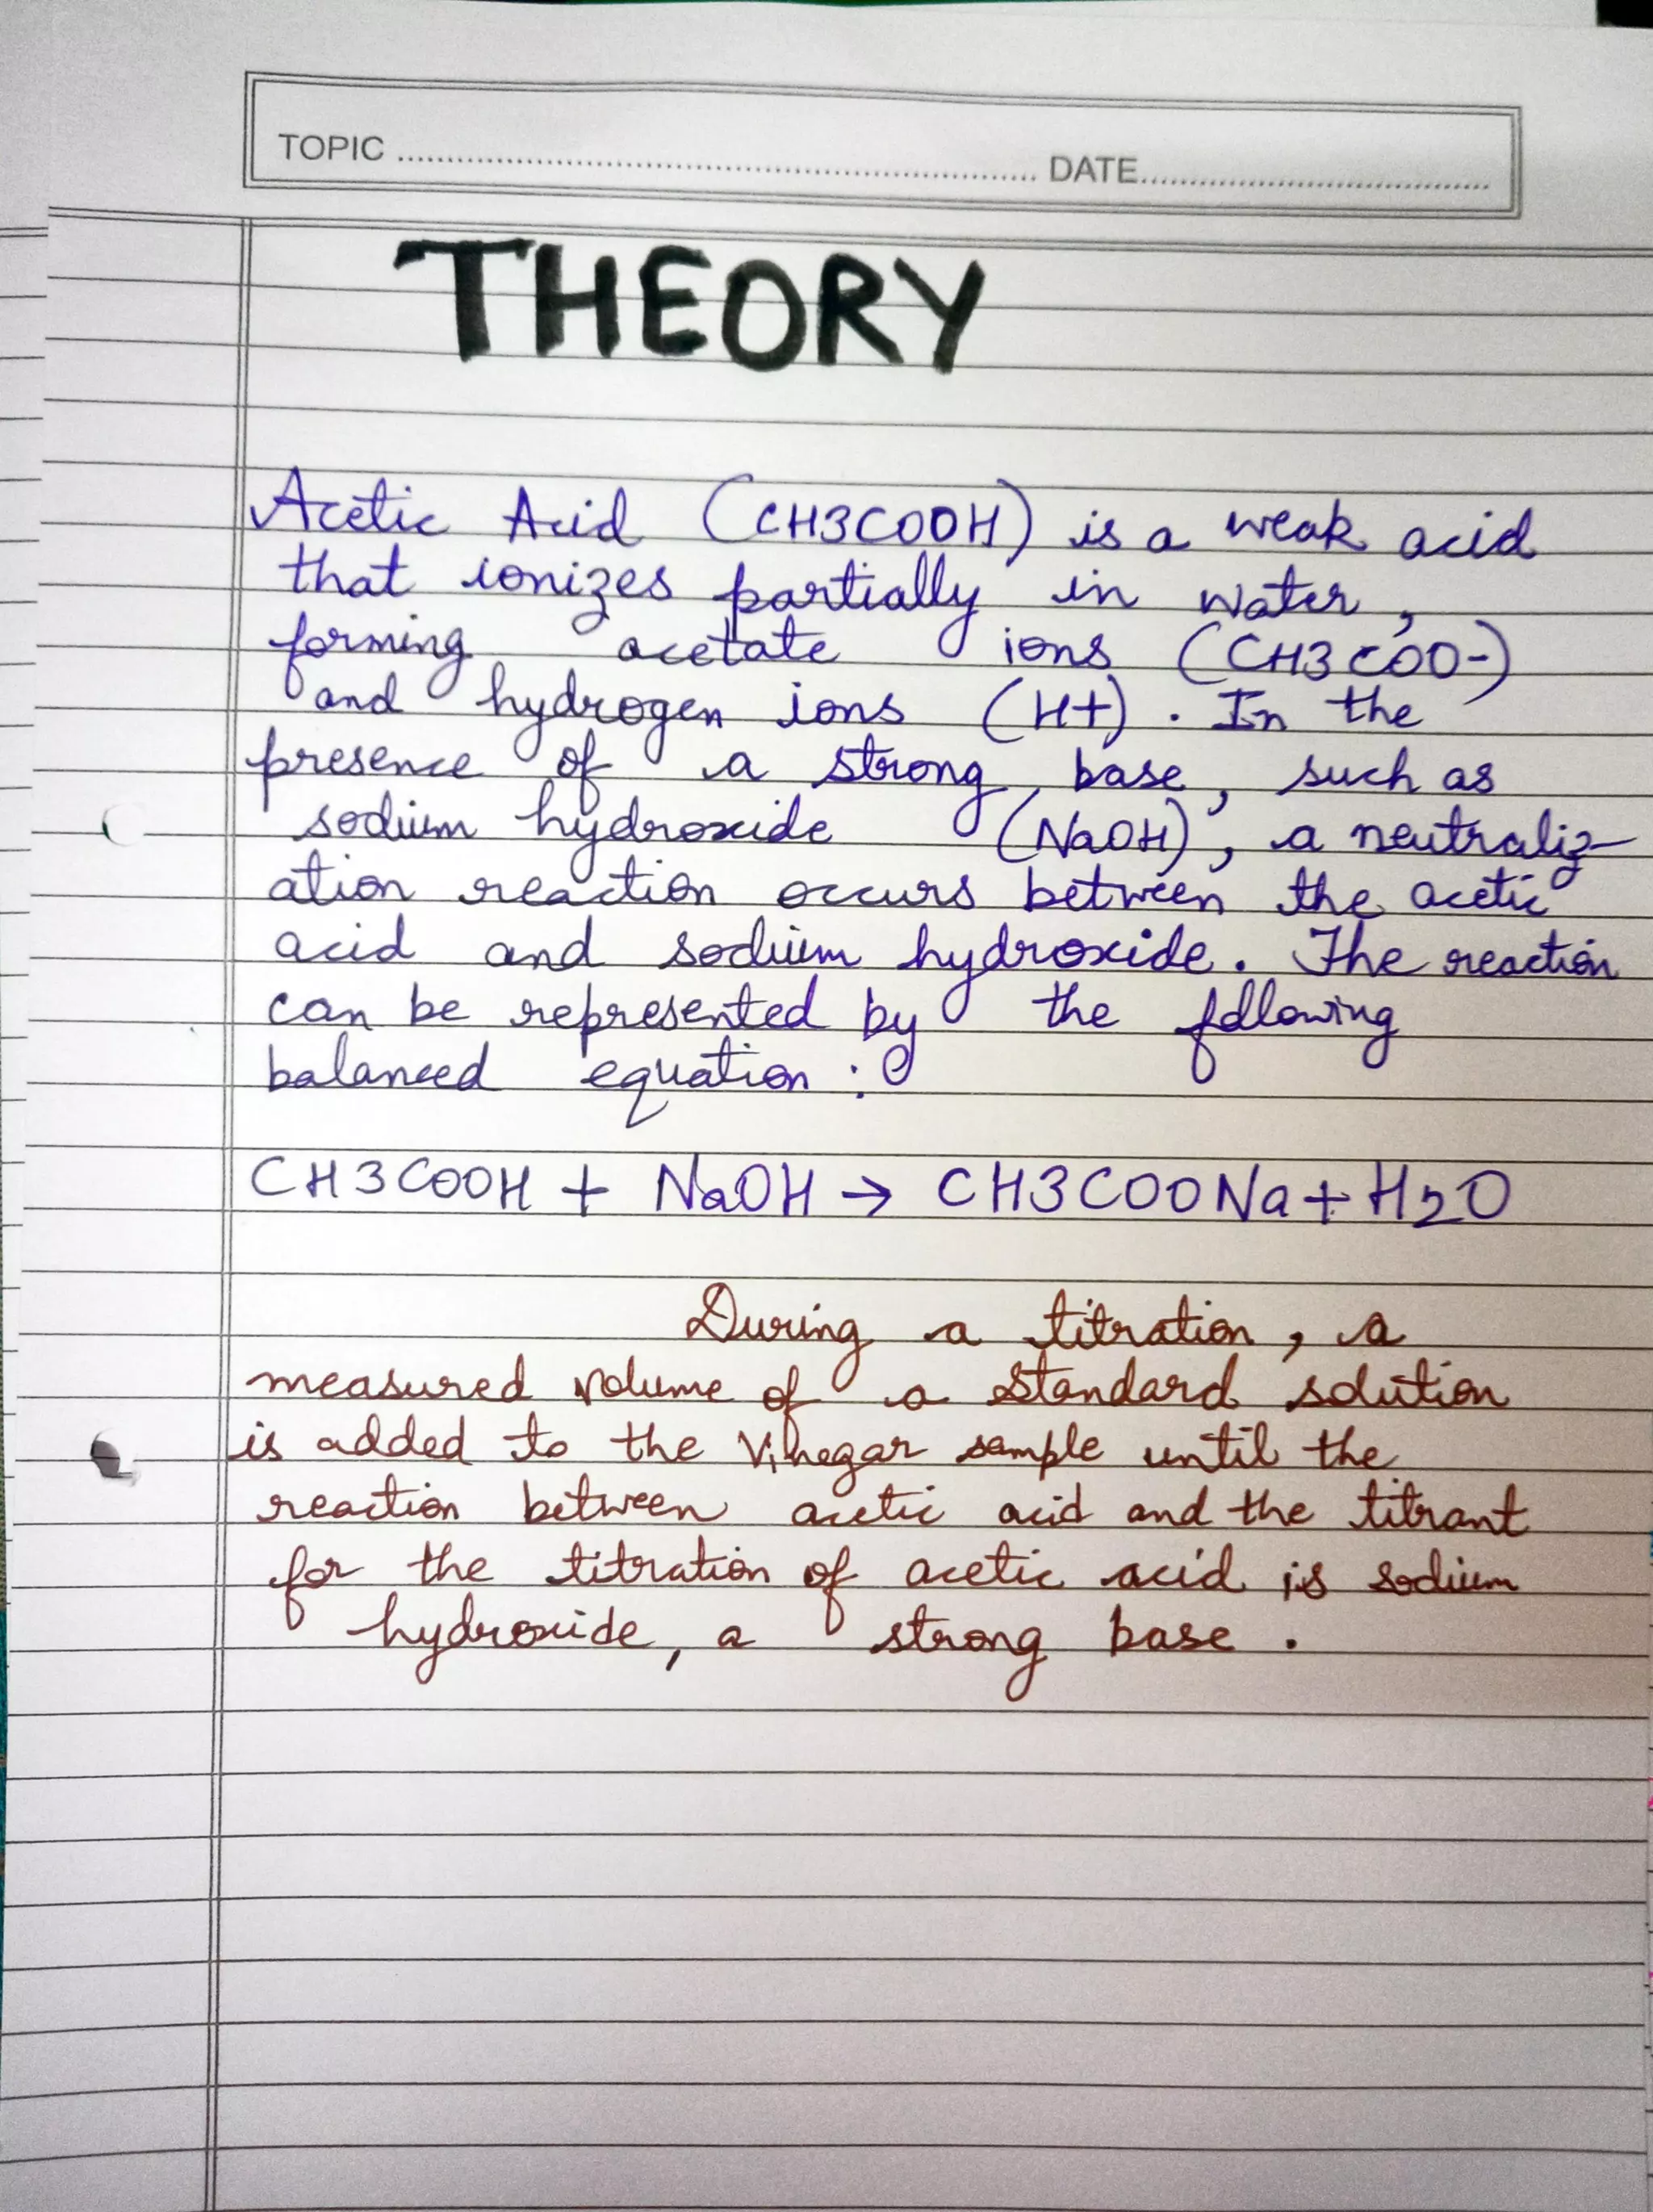 TOPIC ........................ DATE........................
THEORY
Acetic Acid (CH3COOH) is a weak acid
that ionizes partially in water,
forming acetate ions (CH3COO-)
and hydrogen ions (H+). In the
presence of a strong base, such as
sodium hydroxide (NaOH), a neutraliz-
ation reaction occurs between the acetic
acid and sodium hydroxide. The reaction
can be represented by the following
balanced equation :
CH3COOH + NaOH → CH3COONa + H2O
During a titration, a
measured volume of a standard solution
is added to the Vinegar sample until the
reaction between acetic acid and the titrant
for the titration of acetic acid is sodium
hydroxide, a strong base .